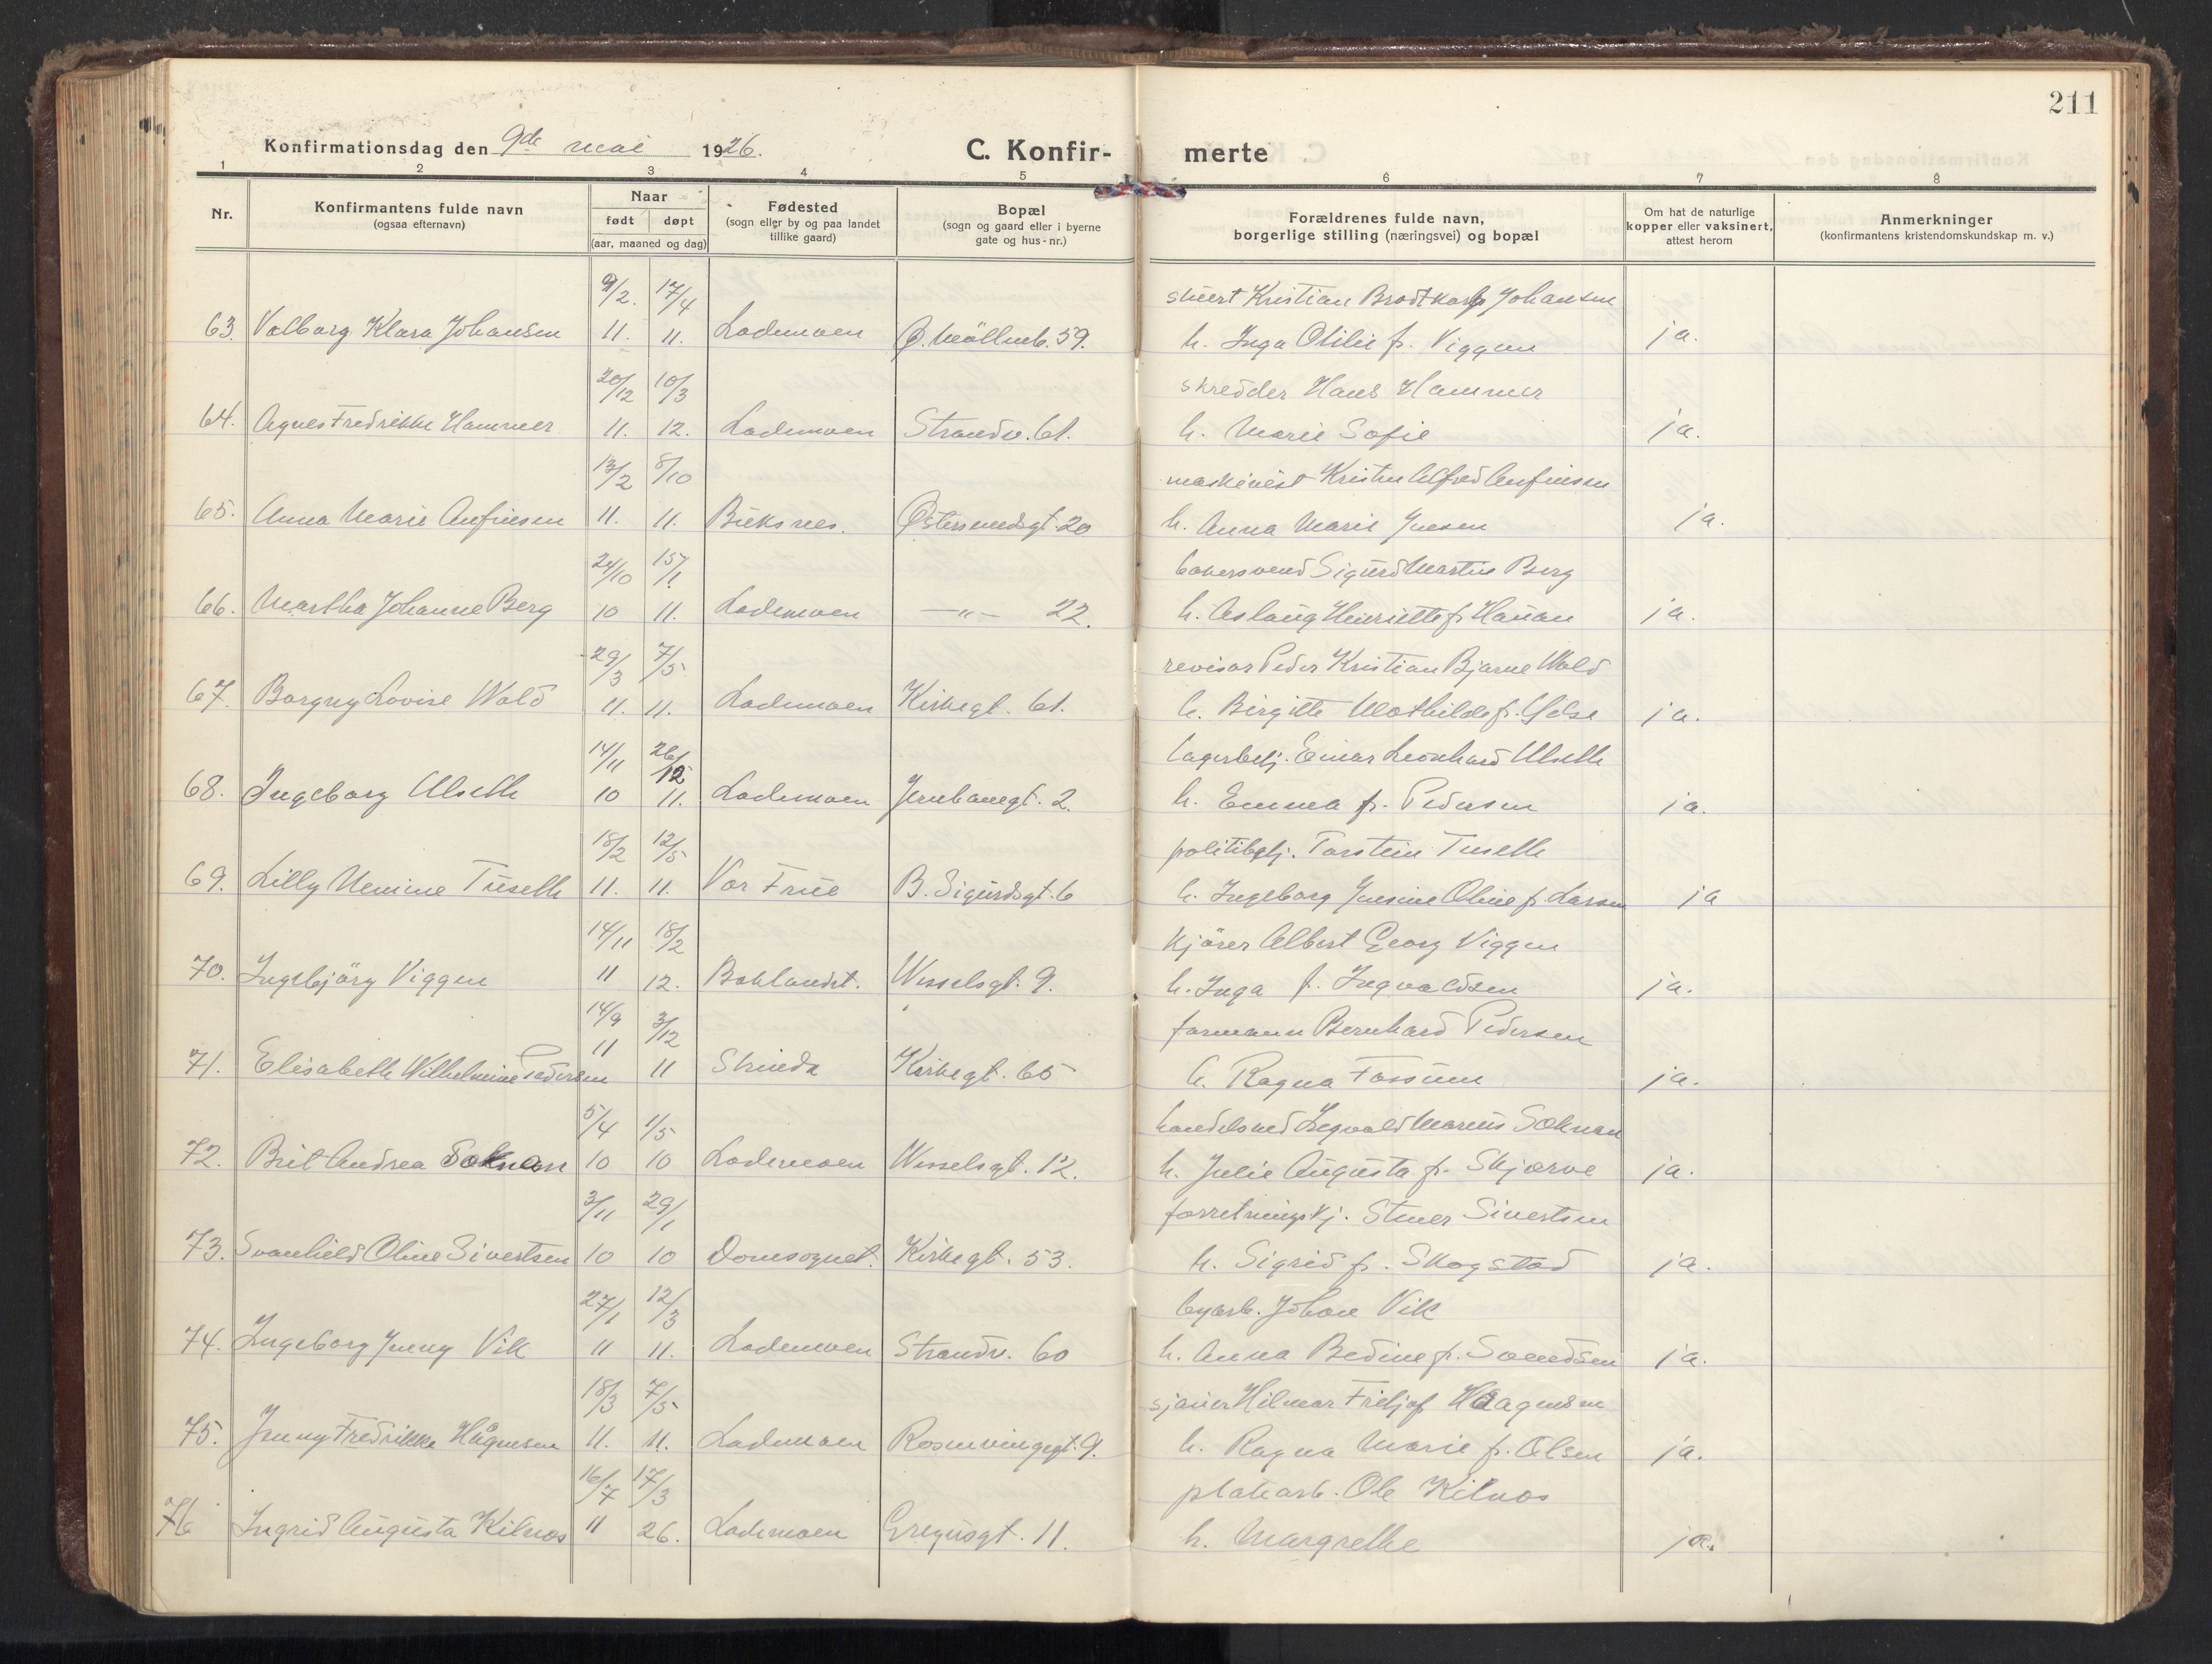 211
Konfirmationsdag den 9de mai 1926.
C. Konfir- merte
1 2 3 4 5 6 7 8
Nr.
Konfirmantens fulde navn
(ogsaa efternavn)
Naar
født døpt
(aar, maaned og dag)
Fødested
(sogn eller by og paa landet
tillike gaard)
Bopæl
(sogn og gaard eller i byerne
gate og hus-nr.)
Forældrenes fulde navn,
borgerlige stilling (næringsvei) og bopæl
Om hat de naturlige
kopper eller vaksinert,
attest herom
Anmerkninger
(konfirmantens kristendomskundskap m. v.)
9/2. 17/4 Kristian Brodtkorb Johansen
63. Valborg Klara Johansen 11. 11. Lademoen Ø. Möllenb. 59. h. Inga Otilie f. Viggen ja.
20/12 10/3 skredder Hans Hammer
64. Agnes Fredrikke Hammer 11. 12. Lademoen Strandv. 61. h. Marie Sofie ja.
13/2 8/10 maskinist Kristen Alfred Anfinsen
65. Anna Marie Anfinsen 11. 11. Buksnes. Østersundsgt. 20 h. Anna Marie Jensen ja.
24/10 15/1 bakersvend Sigurd Martin Berg
66. Martha Johanne Berg 10 11. Lademoen —"— 22. h. Aslaug Henriette f. Hanan ja.
29/3 7/5 revisor Peder Kristian Bjarne Wold
67. Borgny Lovise Wold 11. 11. Lademoen Kirkegt. 61. h. Birgitte Mathilde f. ja.
14/11 26/12 lagerbetj. Einar Leonhard Ulseth
68. Ingeborg Ulseth 10 11. Lademoen Jernbanegt. 2. h. Emma f. Pedersen ja.
18/2 12/5 politibetj. Torstein Tuseth
69. Lilly Nemine Tuseth 11. 11. Vor Frue B. Sigurdsgt. 6 h. Ingeborg Jensine Oline f. Larsen ja
14/11 18/2 kjörer Albert Georg Viggen
70. Ingebjörg Viggen 11 12. Baklandet. Wesselsgt. 9. h. Inga f. Ingvaldsen ja.
14/9 3/12 formann Bernhard Pedersen
71. Elisabeth Wilhelmine Pedersen 11 11 Strinda Kirkegt. 65 h. Ragna Fossum ja.
5/4 1/5 handelsmed Ingvald Marius Soknan
72. Brit Andrea Soknan 10 10 Lademoen Wesselsgt. 12. h. Julie Augusta f. Skjærve ja.
3/11 29/1 forretningsbj. Stener Sivertsen
73. Svanhild Oline Sivertsen 10 10 Domsognet. Kirkegt. 53. h. Sigrid f. Skogstad ja.
27/1 12/3 byarb. Johan Vik
74. Ingeborg Jenny Vik 11 11. Lademoen Strandv. 60 h. Anna Bedine f. Svendsen ja.
18/3 7/5 sjauer Hilmar Fritjof Haagensen
75. Jenny Fredrikke Hågensen 11. 11. Lademoen Rosenvingegt. 9. h. Ragna Marie f. Olsen ja.
16/7 17/3 platearb. Ole Kilnes
76 Ingrid Augusta Kilnes 11 26. Lademoen Gregusgt. 11. h. Margrethe ja.